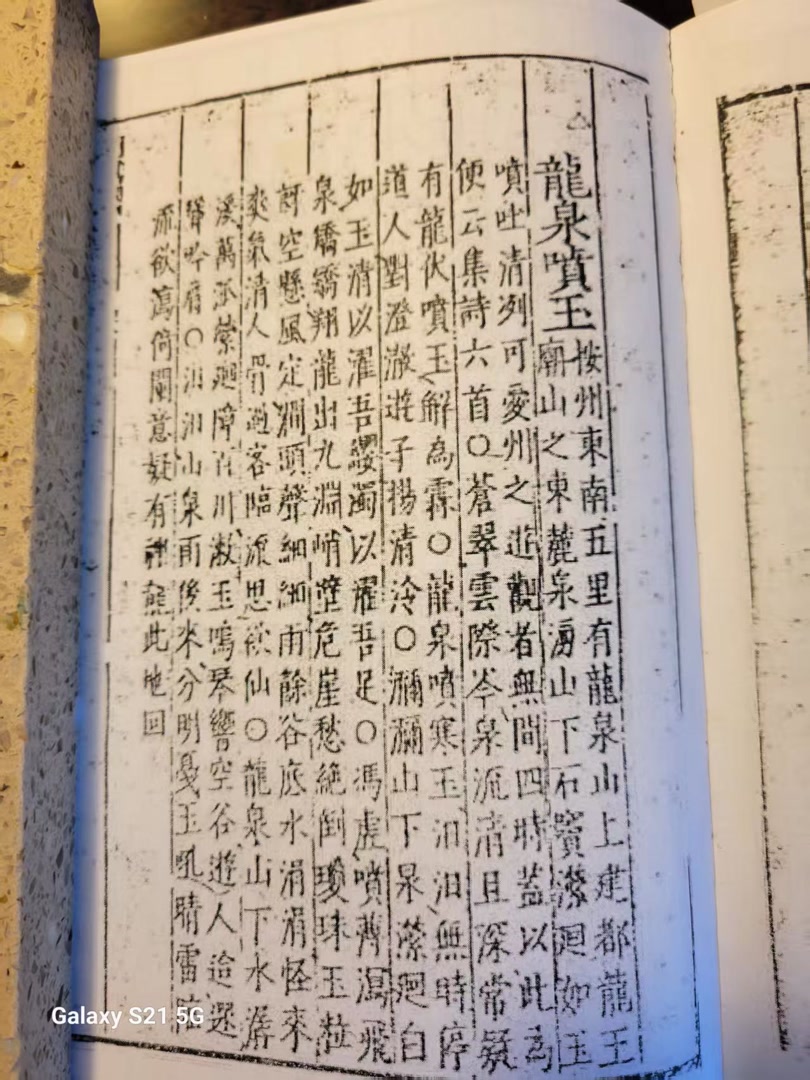 龍泉噴玉
按州東南五里有龍泉山上建都龍王
廟山之東麓泉湧山下石竇瀠廻如玉
噴吐清列可愛州之遊觀者無間四時蓋以此為
便云集詩六首○蒼翠雲際岑泉流清且深常疑
有龍伏噴玉解為霖○龍泉噴寒玉汩汩無時停
道人對澄澈遊子揚清泠○瀰瀰山下泉瀠廻白
如玉清以濯吾纓濁以濯吾足○馮虎噴薺瀉飛
泉矯矯翔龍出九淵峭壁危崖愁絕倒瓊珠玉粒
訝空懸風定澗頭聲細細雨餘谷底水涓涓怪來
爽氣清人骨過客臨流思欲仙○龍泉山下水潺
溪萬派縈廻障百川漱玉鳴琴響空谷遊人
聳吟肩○汩汩山泉雨後來分明戞玉吼晴雷臨
流欲瀉倚闌意疑有神龍此地回
Galaxy S21 5G